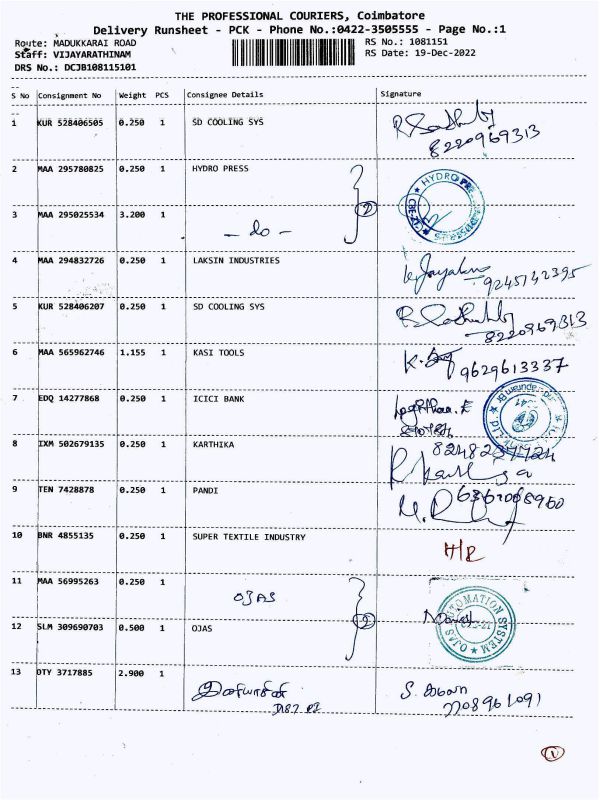 THE PROFESSIONAL COURIERS, Coimbatore
Delivery Runsheet - PCK - Phone No.:0422-3505555 - Page No.:1
Route: MADUKKARAI ROAD RS No.: 1081151
Staff: VIJAYARATHINAM RS Date: 19-Dec-2022
DRS No.: DCJB108115101
S No Consignment No Weight PCS Consignee Details Signature
1 KUR 528406505 0.250 1 SD COOLING SYS
8220969313
2 MAA 295780825 0.250 1 HYDRO PRESS
HYDRO PRE
2
3 MAA 295025534 3.200 1 - do -
4 MAA 294832726 0.250 1 LAKSIN INDUSTRIES
9245142395
5 KUR 528406207 0.250 1 SD COOLING SYS
8220969313
6 MAA 565962746 1.155 1 KASI TOOLS
9629613337
7 EDQ 14277868 0.250 1 ICICI BANK
8 IXM 502679135 0.250 1 KARTHIKA
9 TEN 7428878 0.250 1 PANDI
10 BNR 4855135 0.250 1 SUPER TEXTILE INDUSTRY
H/R
11 MAA 56995263 0.250 1 OJAS
2
12 SLM 309690703 0.500 1 OJAS
OJAS AUTOMATION SYSTEM
13 OTY 3717885 2.900 1